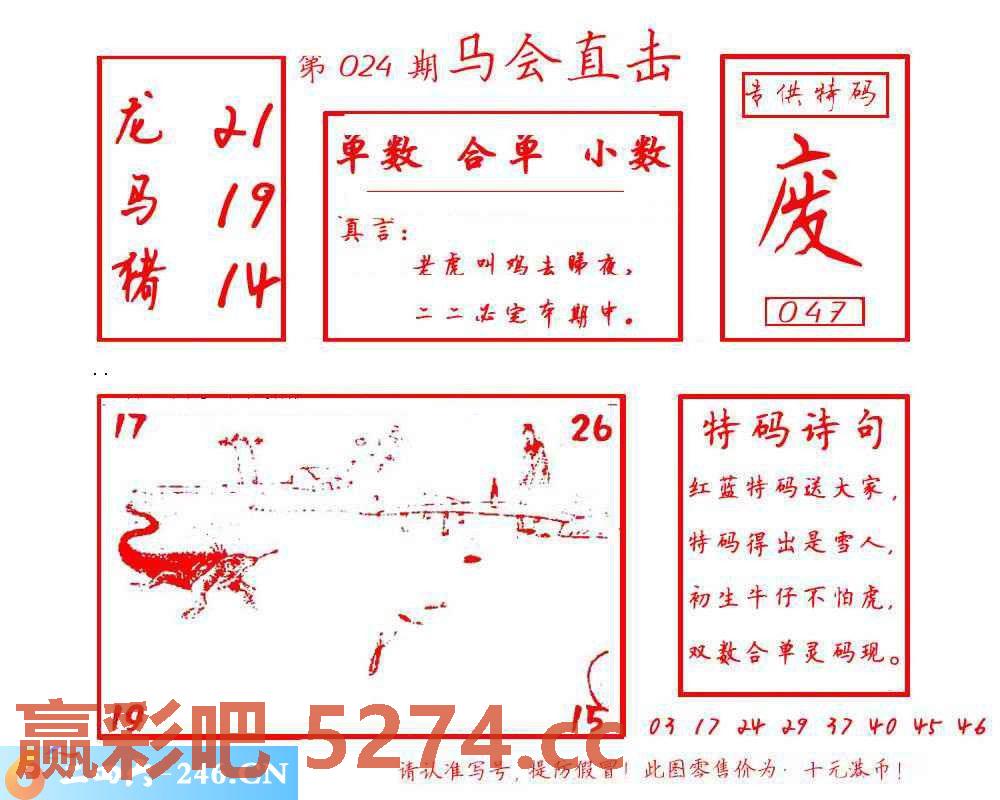 第 024 期 马会直击
龙 21
马 19
猪 14
单数 合单 小数
真言:
老虎叫鸡去睇夜,
二二必定本期中。
专供特码
废
047
17
26
19
15
特码诗句
红蓝特码送大家,
特码得出是雪人,
初生牛仔不怕虎,
双数合单灵码现。
03 17 24 29 37 40 45 46
赢彩吧 5274.cc
-246.CN
请认准写号,提防假冒!此图零售价为·十元港币!